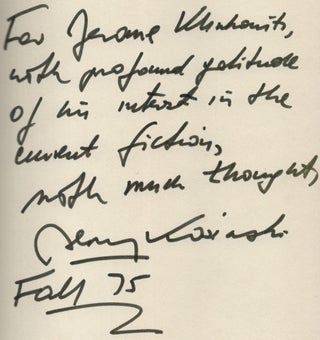 For Jerome Klinkowitz,
with profound gratitude
of his interest in the
current fiction,
with much thought,
Jerzy Kosinski
Fall 75